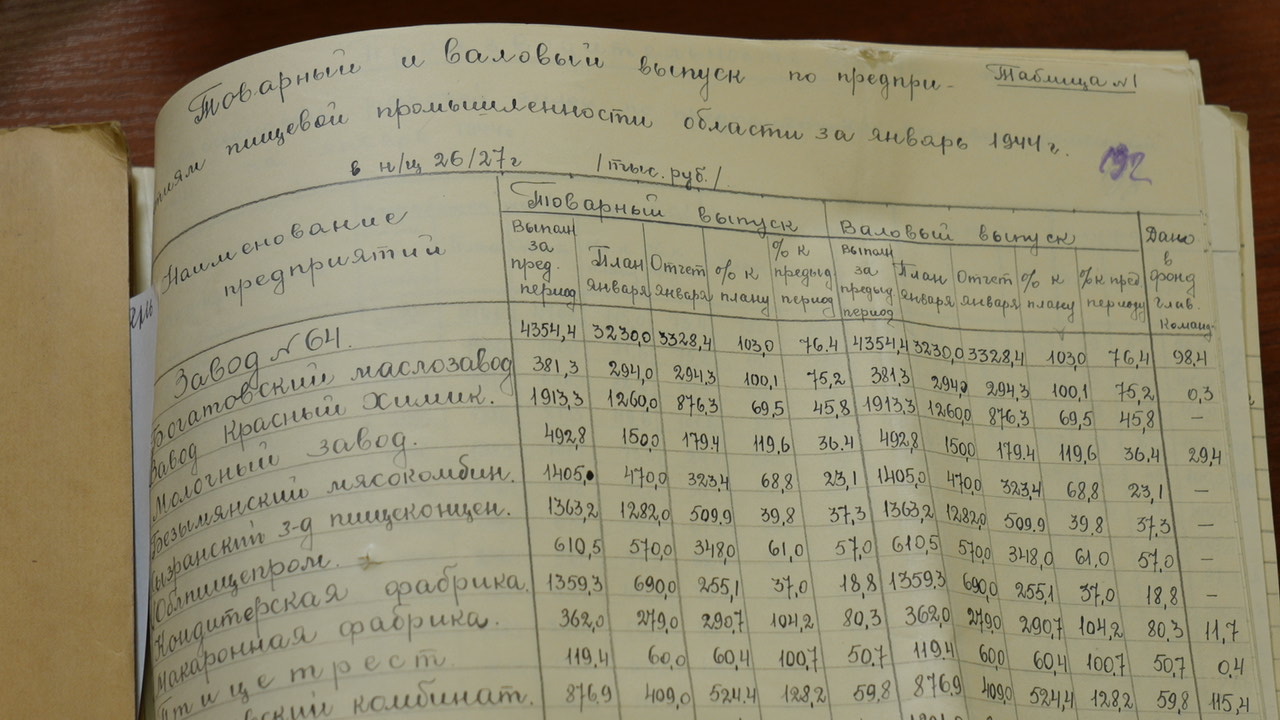 Товарный и валовый выпуск по предпри- Таблица №1
ятиям пищевой промышленности области за январь 1944 г.
в н/ц 26/27г /тыс. руб./
192
Наименование предприятий
Товарный выпуск Валовый выпуск Дано в фонд глав. команд.
Выполн за пред. период План января Отчет января % к плану % к предыд период Выполн за предыд период План января Отчет января % к плану % к пред периоду
Завод №64. 4354,4 3230,0 3328,4 103,0 76.4 4354,4 3230,0 3328,4 103,0 76,4 98.4
Богатовский маслозавод 381,3 294,0 294,3 100,1 75,2 381,3 294,0 294,3 100,1 75,2 0,3
Завод Красный Химик. 1913,3 1260,0 876,3 69,5 45,8 1913,3 1260,0 876,3 69,5 45,8 —
Молочный завод. 492,8 150,0 179.4 119,6 36.4 492,8 150,0 179.4 119,6 36,4 29,4
Безымянский мясокомбин. 1405,0 470,0 323,4 68,8 23,1 1405,0 470,0 323,4 68,8 23,1 —
Сызранский з-д пищеконцен. 1363,2 1282,0 509,9 39,8 37,3 1363,2 1282,0 509,9 39,8 37,3 —
Облпищепром. 610,5 570,0 348,0 61,0 57,0 610,5 570,0 348,0 61,0 57,0 —
Кондитерская фабрика. 1359,3 690,0 255,1 37,0 18,8 1359,3 690,0 255,1 37,0 18,8 —
Макаронная фабрика. 362,0 279,0 290,7 104,2 80,3 362,0 279,0 290,7 104,2 80,3 11,7
Птицетрест 119,4 60,0 60,4 100,7 50,7 119,4 60,0 60,4 100,7 50,7 0,4
комбинат. 876,9 409,0 524,4 128,2 59,8 876,9 409,0 524,4 128,2 59,8 115,4